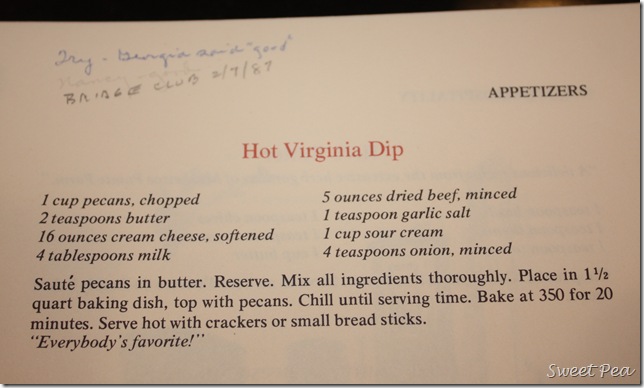 Try - Georgia said "good"
Nancy - good
BRIDGE CLUB 2/7/87
APPETIZERS
Hot Virginia Dip
1 cup pecans, chopped
2 teaspoons butter
16 ounces cream cheese, softened
4 tablespoons milk
5 ounces dried beef, minced
1 teaspoon garlic salt
1 cup sour cream
4 teaspoons onion, minced
Sauté pecans in butter. Reserve. Mix all ingredients thoroughly. Place in 1½
quart baking dish, top with pecans. Chill until serving time. Bake at 350 for 20
minutes. Serve hot with crackers or small bread sticks.
"Everybody's favorite!"
Sweet Pea